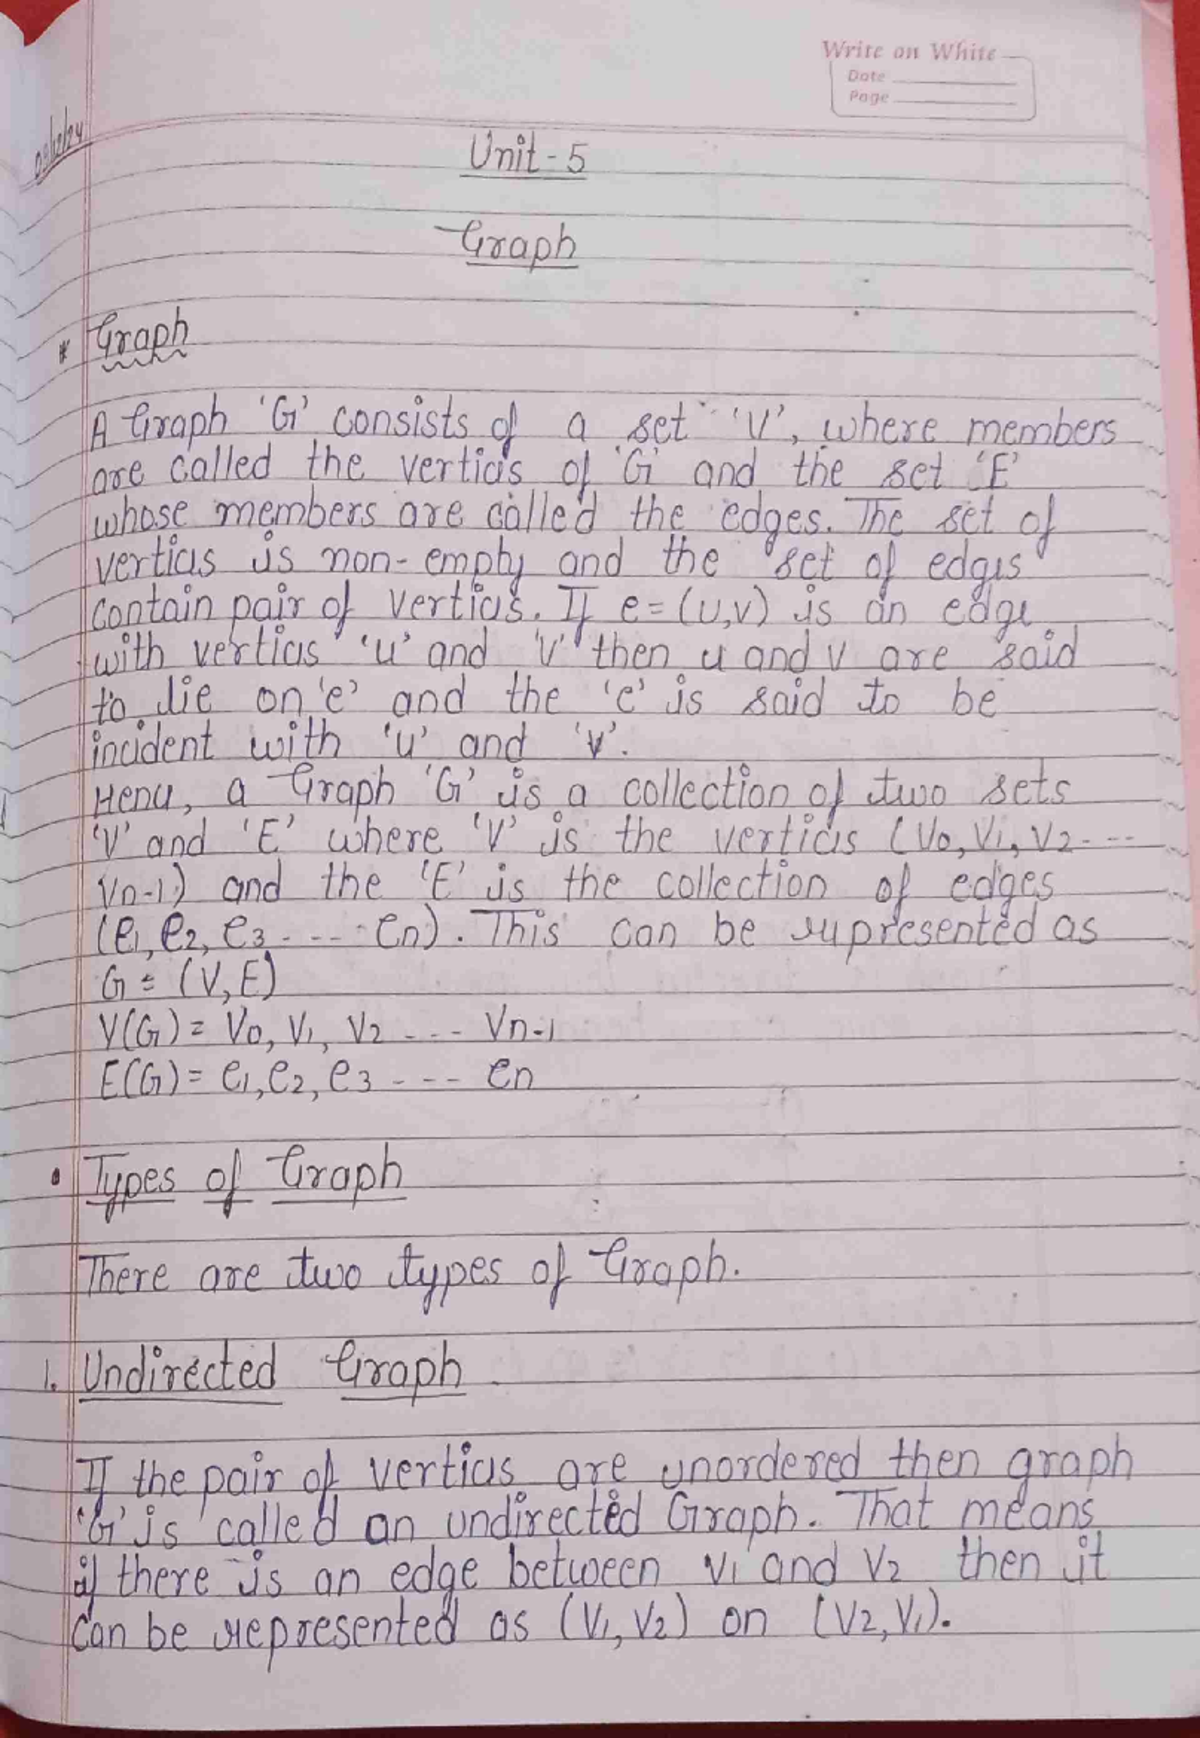 Write on White
Date
Page
Unit - 5
Graph
* Graph
A Graph 'G' consists of a set 'V', where members
are called the vertices of 'G' and the set 'E'
whose members are called the edges. The set of
vertices is non-empty and the set of edges
contain pair of vertices. If e = (u,v) is an edge
with vertices 'u' and 'v' then u and v are said
to lie on 'e' and the 'e' is said to be
incident with 'u' and 'v'.
Hence, a Graph 'G' is a collection of two sets
'V' and 'E' where 'V' is the vertices (V0, V1, V2 - - -
Vn-1) and the 'E' is the collection of edges
(e1, e2, e3 - - - - en). This can be represented as
G = (V, E)
V(G) = V0, V1, V2 - - - Vn-1
E(G) = e1, e2, e3 - - - en
• Types of Graph
There are two types of Graph.
1. Undirected Graph
If the pair of vertices are unordered then graph
'G' is called an undirected Graph. That means
if there is an edge between V1 and V2 then it
can be represented as (V1, V2) on (V2, V1).